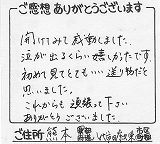 ご感想ありがとうございます
開けてみて感動しました。
泣が出るくらい嬉しかったです。
初めて見てとても…いい送り物だと
思いました。
これからも頑張って下さい
ありがとうございました。
ご住所 熊本